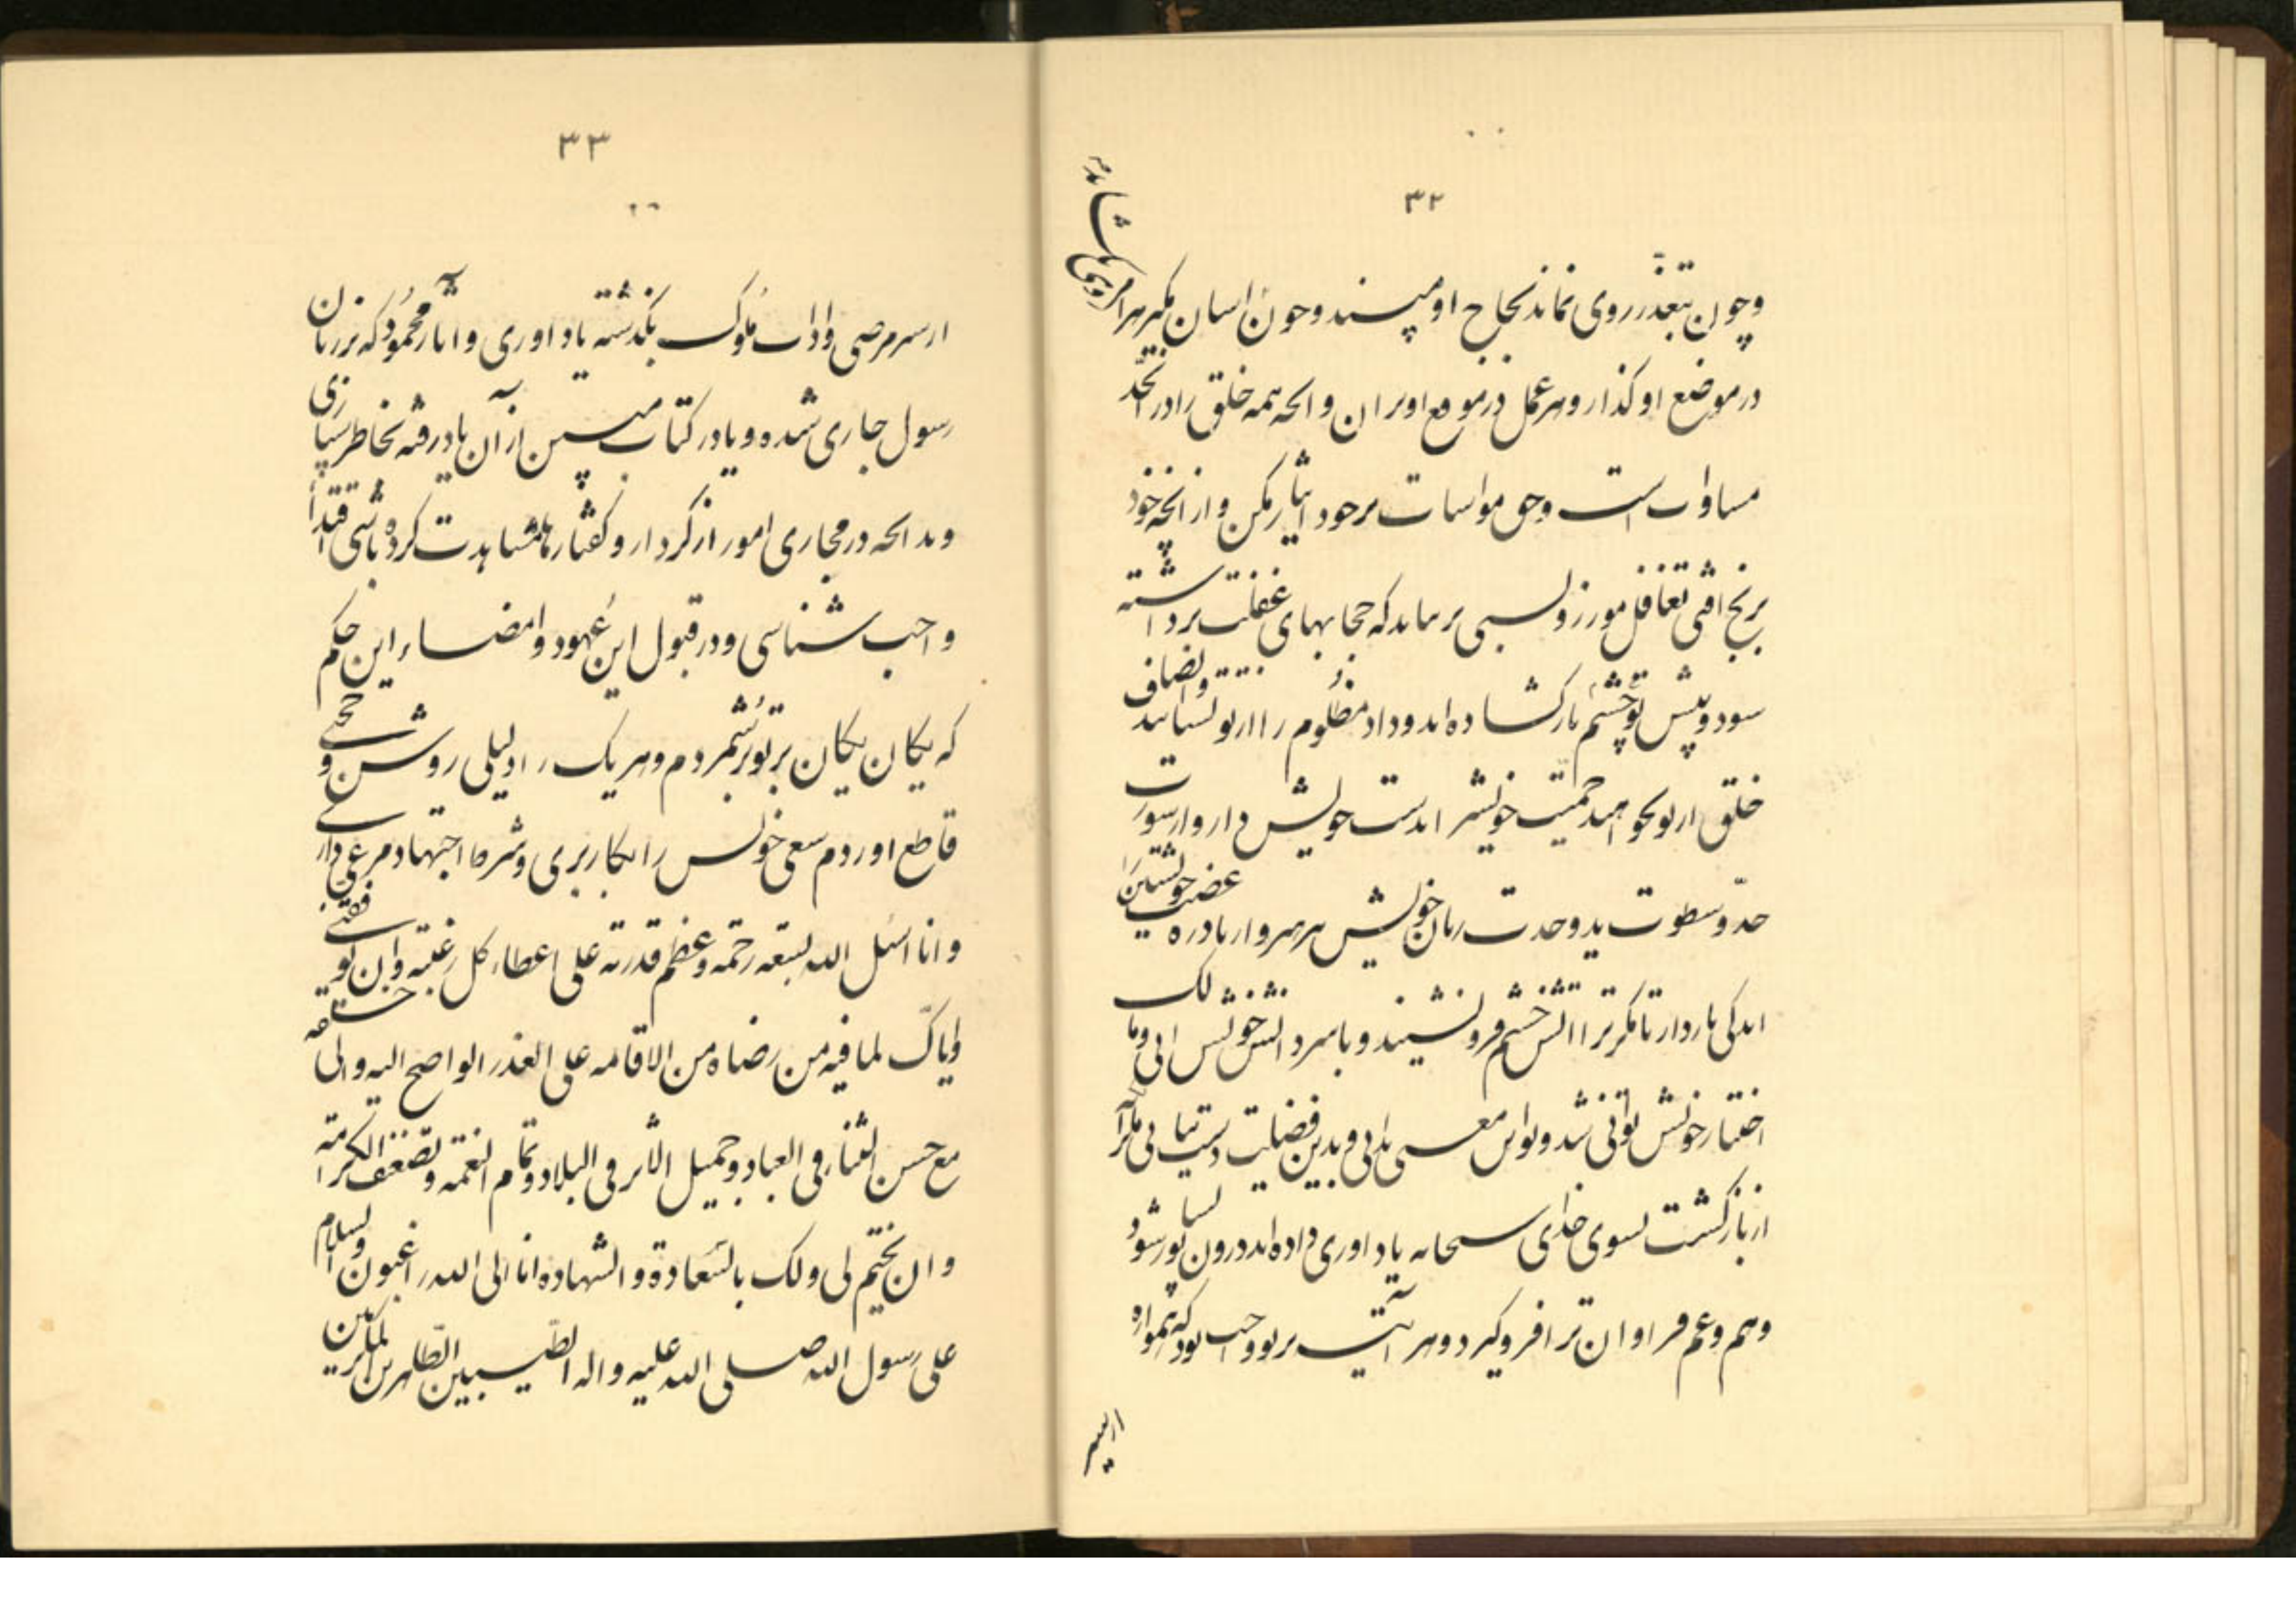 ۳۲
وچون بتعذر روی نماید نجاح او مپسند وچون اسان مگیر هر امری
در موضع او گذار و هر عمل در موقع او بران و انچه همه خلق را در
مساوات است وحق مواسات بر خود ایثار مکن و از انچه خود
برنج افتی تغافل مورز و لسبی بر نیاید که حجابهای غفلت برداشته
سود و پیش تو چشم باز کشاده اند و داد مظلوم را از تو بستانند وانصاف
خلق از تو بخواهند حمیت خویش را بدست خویش دار و از سورت
حد و سطوت ید و حدت زبان خویش بپرهیز و از بادره غضب خویشتن را
اندکی باز دار تا مگر ترا اتش خشم فرو نشیند و باسر دانش خویش ائی و مالک
اختیار خویش توانی شد و تو این معنی نیابی و بدین فضیلت دست نیابی مگر انکه
از بازگشت بسوی خدای سبحانه یاد اوری داده اند درون تو بشورد
و هم و غم فراوان ترا فرو گیرد و هر اینه بر تو واجب بود که همواره
از سیر
۳۳
از سر مرضی و اداب ملوک گذشته یاد اوری و اثار محموده که بر زبان
رسول جاری شده و یا در کتاب مبین از ان یاد رفته بخاطر سپاری
و بدانچه در مجاری امور از کردار و گفتار ما مشاهدت کرده باشی اقتدا
واجب شناسی و در قبول این عهود و امضاء این حکم
که یکان یکان بر تو برشمردم و هر یک را دلیلی روشن و حجتی
قاطع اوردم سعی خویش را بکار بری و شرط اجتهاد مرعی داری
و انا اسئل الله بسعة رحمته وعظیم قدرته علی اعطاء کل رغبة وان یوفقنی
وایاک لما فیه من رضاه من الاقامه علی العذر الواضح الیه والی خلقه
مع حسن الثناء فی العباد وجمیل الاثر فی البلاد وتمام النعمة وتضعیف الکرامة
وان یختم لی ولک بالسعادة والشهادة انا الی الله راغبون والسلام
علی رسول الله صلی الله علیه واله الطیبین الطاهرین